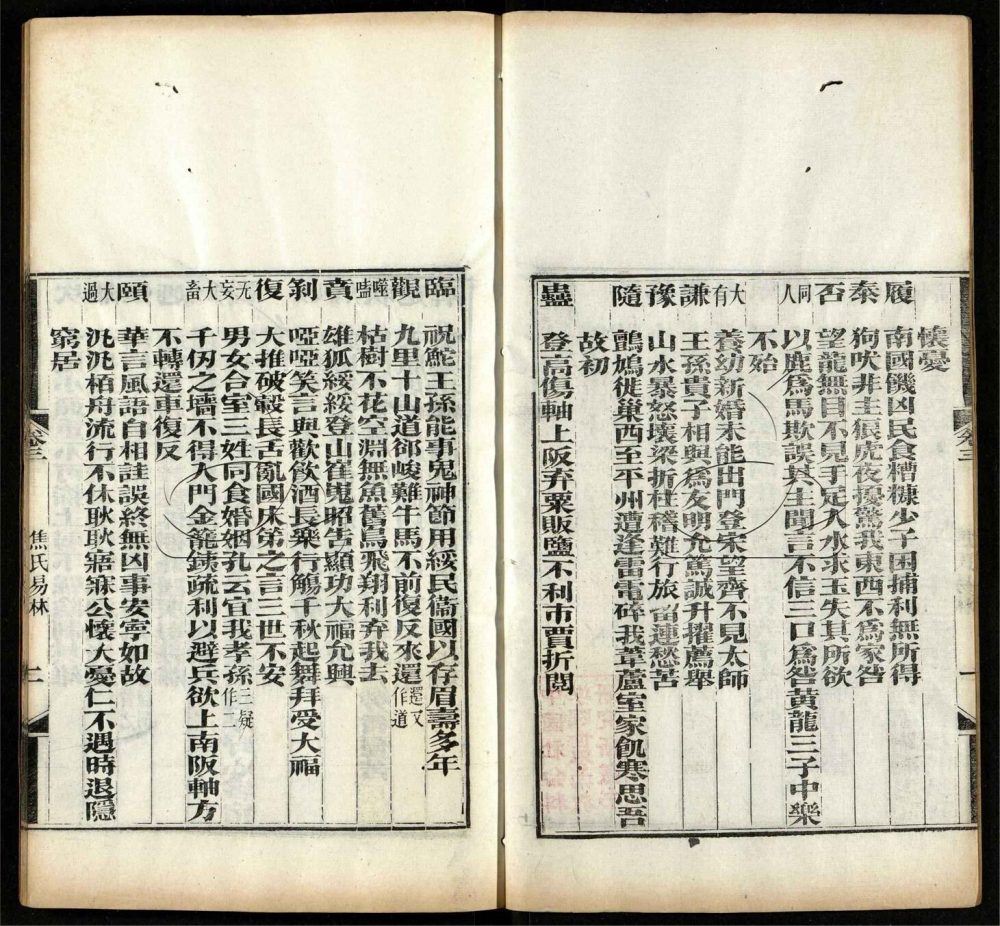 懷憂
履 南國饑凶民食糟糠少子困捕利無所得
泰 狗吠非主狼虎夜擾驚我東西不爲家咎
否 望龍無目不見手足入水求玉失其所欲
同人 以鹿爲馬欺誤其主聞言不信三口爲咎黄龍三子中樂
不始
大有 養幼新婚未能出門登宋望齊不見太師
謙 王孫貴子相與爲友明允篤誠升擢薦舉
豫 山水暴怒壞梁折柱稽難行旅留連愁苦
隨 鸇鳩徙巢西至平州遭逢雷電碎我葦蘆室家飢寒思吾
故初
蠱 登高傷軸上阪弃粟販鹽不利市賈折閱
卷三
一
臨 祝鮀王孫能事鬼神節用綏民衞國以存眉壽多年
觀 九里十山道郤峻難牛馬不前復反來還還又作道
噬嗑 枯樹不花空淵無魚舊鳥飛翔利弃我去
賁 雄狐綏綏登山崔嵬昭告顯功大福允興
剝 啞啞笑言與歡飲酒長樂行觴千秋起舞拜受大福
復 大推破轂長舌亂國床第之言三世不安
无妄 男女合室三姓同食婚姻孔云宜我孝孫三疑作二
大畜 千仞之墻不得入門金籠鐵疏利以避兵欲上南阪軸方
不轉還車復反
頤 華言風語自相詿誤終無凶事安寧如故
大過 汎汎栢舟流行不休耿耿寤寐公懷大憂仁不遇時退隱
窮居
卷三
焦氏易林
二